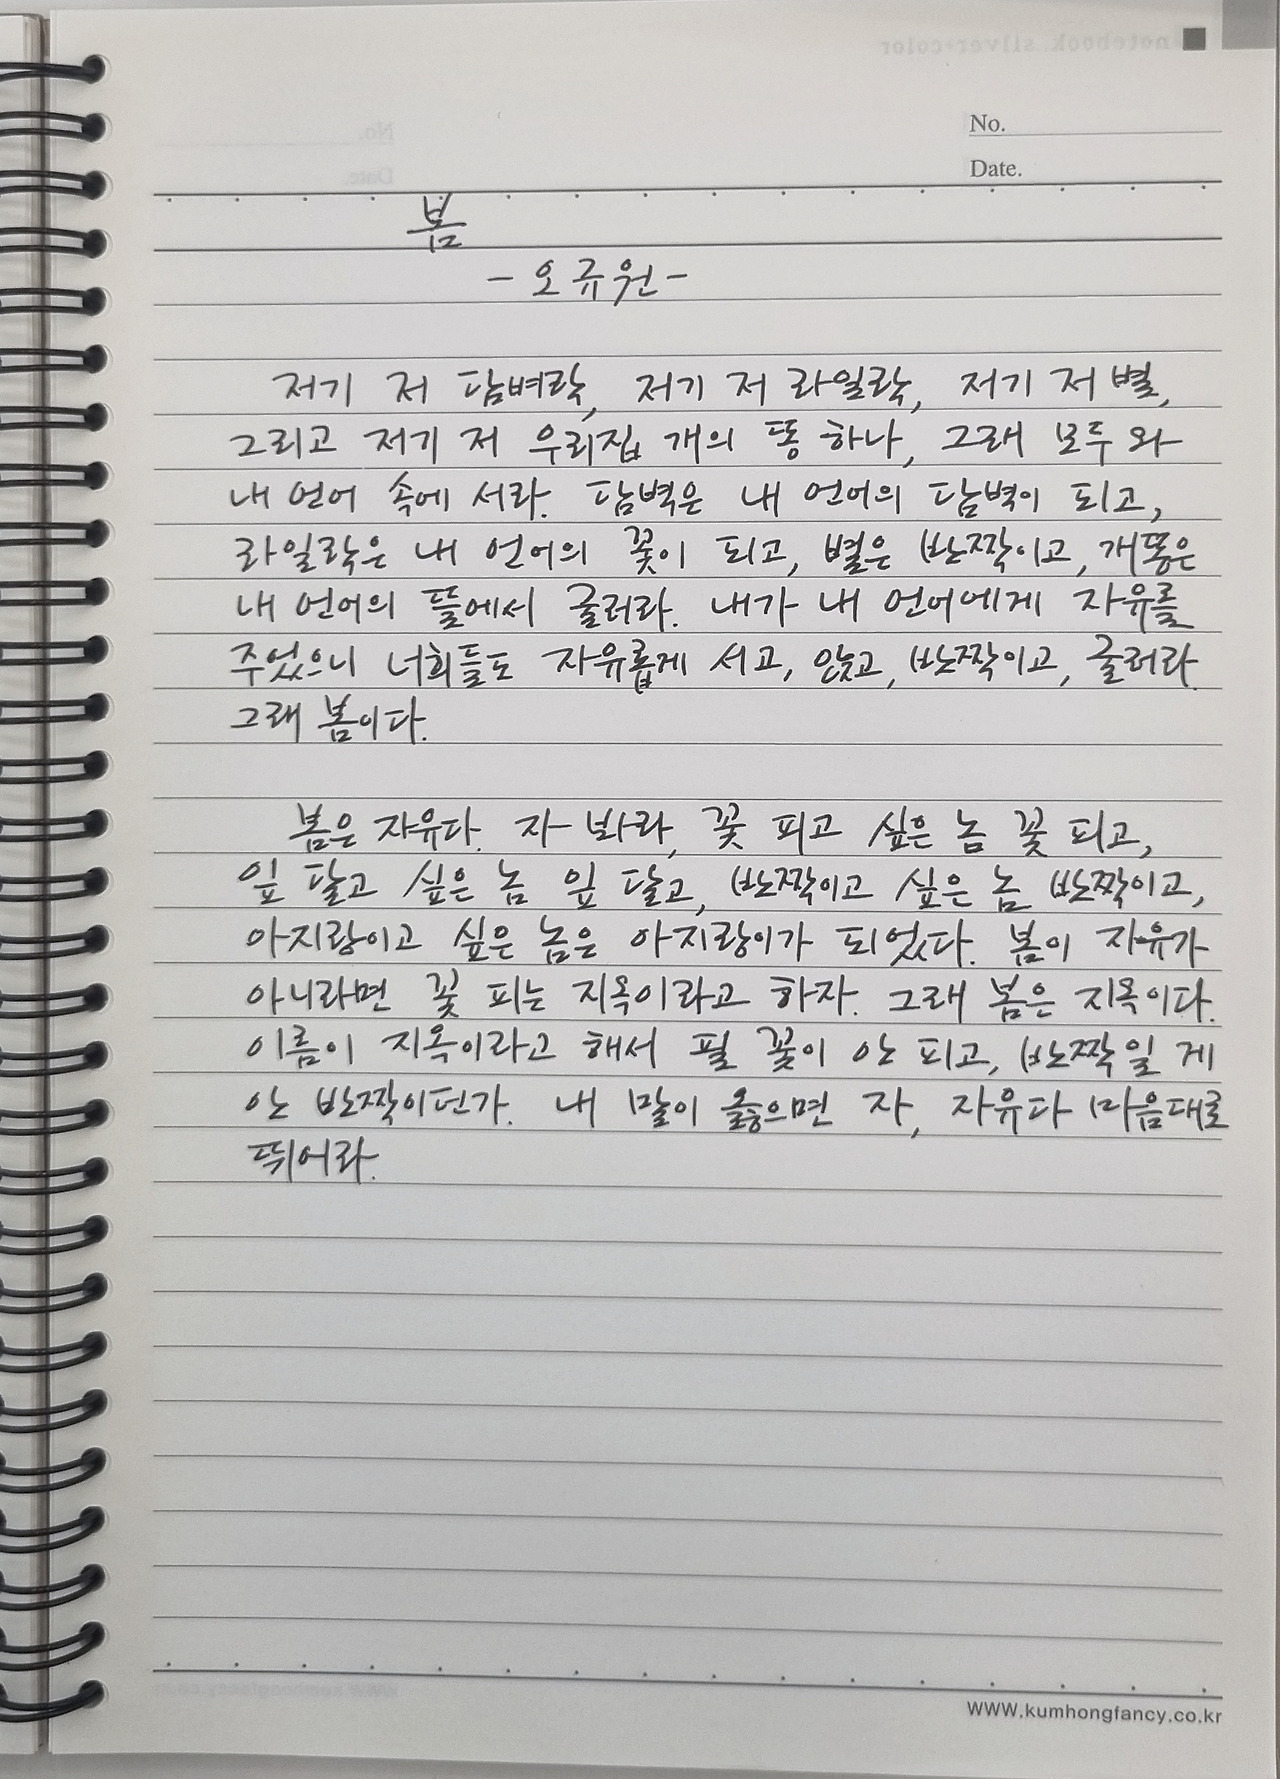 notebook silver+color
No.
Date.
봄
- 오규원 -
저기 저 담벼락, 저기 저 라일락, 저기 저 별,
그리고 저기 저 우리집 개의 똥 하나, 그래 모두 와
내 언어 속에 서라. 담벽은 내 언어의 담벽이 되고,
라일락은 내 언어의 꽃이 되고, 별은 반짝이고, 개똥은
내 언어의 뜰에서 굴러라. 내가 내 언어에게 자유를
주었으니 너희들도 자유롭게 서고, 앉고, 반짝이고, 굴러라.
그래 봄이다.
봄은 자유다. 자 봐라, 꽃 피고 싶은 놈 꽃 피고,
잎 달고 싶은 놈 잎 달고, 반짝이고 싶은 놈 반짝이고,
아지랑이고 싶은 놈은 아지랑이가 되었다. 봄이 자유가
아니라면 꽃 피는 지옥이라고 하자. 그래 봄은 지옥이다.
이름이 지옥이라고 해서 필 꽃이 안 피고, 반짝일 게
안 반짝이던가. 내 말이 옳으면 자, 자유다 마음대로
뛰어라.
WWW.kumhongfancy.co.kr